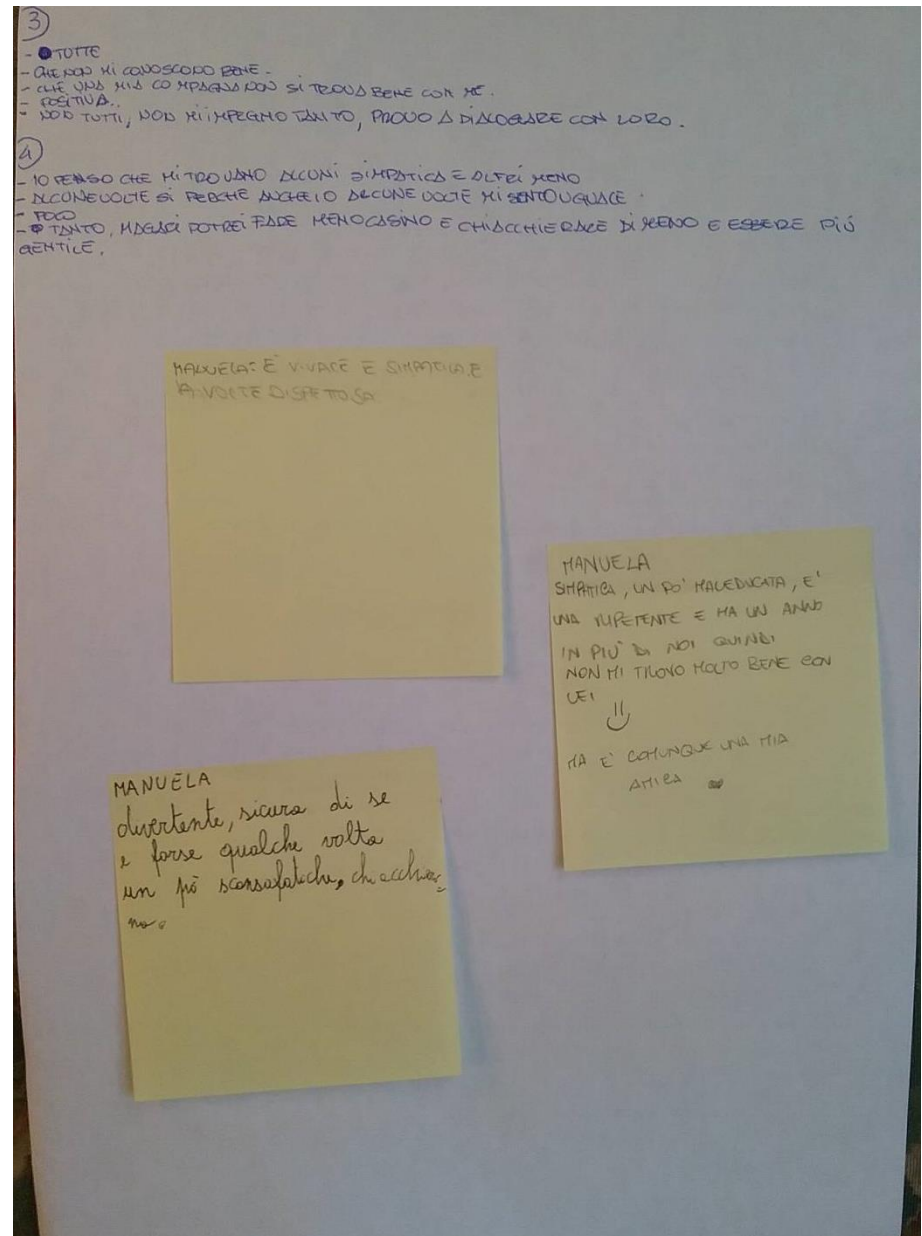 3)
- TUTTE
- CHE NON MI CONOSCONO BENE.
- CHE UNA MIA COMPAGNA NON SI TROVA BENE CON ME.
- POSITIVA..
- NON TUTTI, NON MI IMPEGNO TANTO, PROVO A DIALOGARE CON LORO.
4)
- IO PENSO CHE MI TROVANO ALCUNI SIMPATICA E ALTRI MENO
- ALCUNE VOLTE SI PERCHÉ ANCHE IO ALCUNE VOLTE MI SENTO UGUALE.
- POCO
- TANTO, MAGARI POTREI FARE MENO CASINO E CHIACCHIERARE DI MENO E ESSERE PIÚ
GENTILE.
MANUELA: E' VIVACE E SIMPATICA E
A VOLTE DISPETTOSA
MANUELA
SIMPATICA, UN PO' MALEDUCATA, E'
UNA RIPETENTE E HA UN ANNO
IN PIU' DI NOI QUINDI
NON MI TROVO MOLTO BENE CON
LEI
MA E' COMUNQUE UNA MIA
AMICA
MANUELA
divertente, sicura di se
e forse qualche volta
un pò scansafatiche, chiacchier
na.